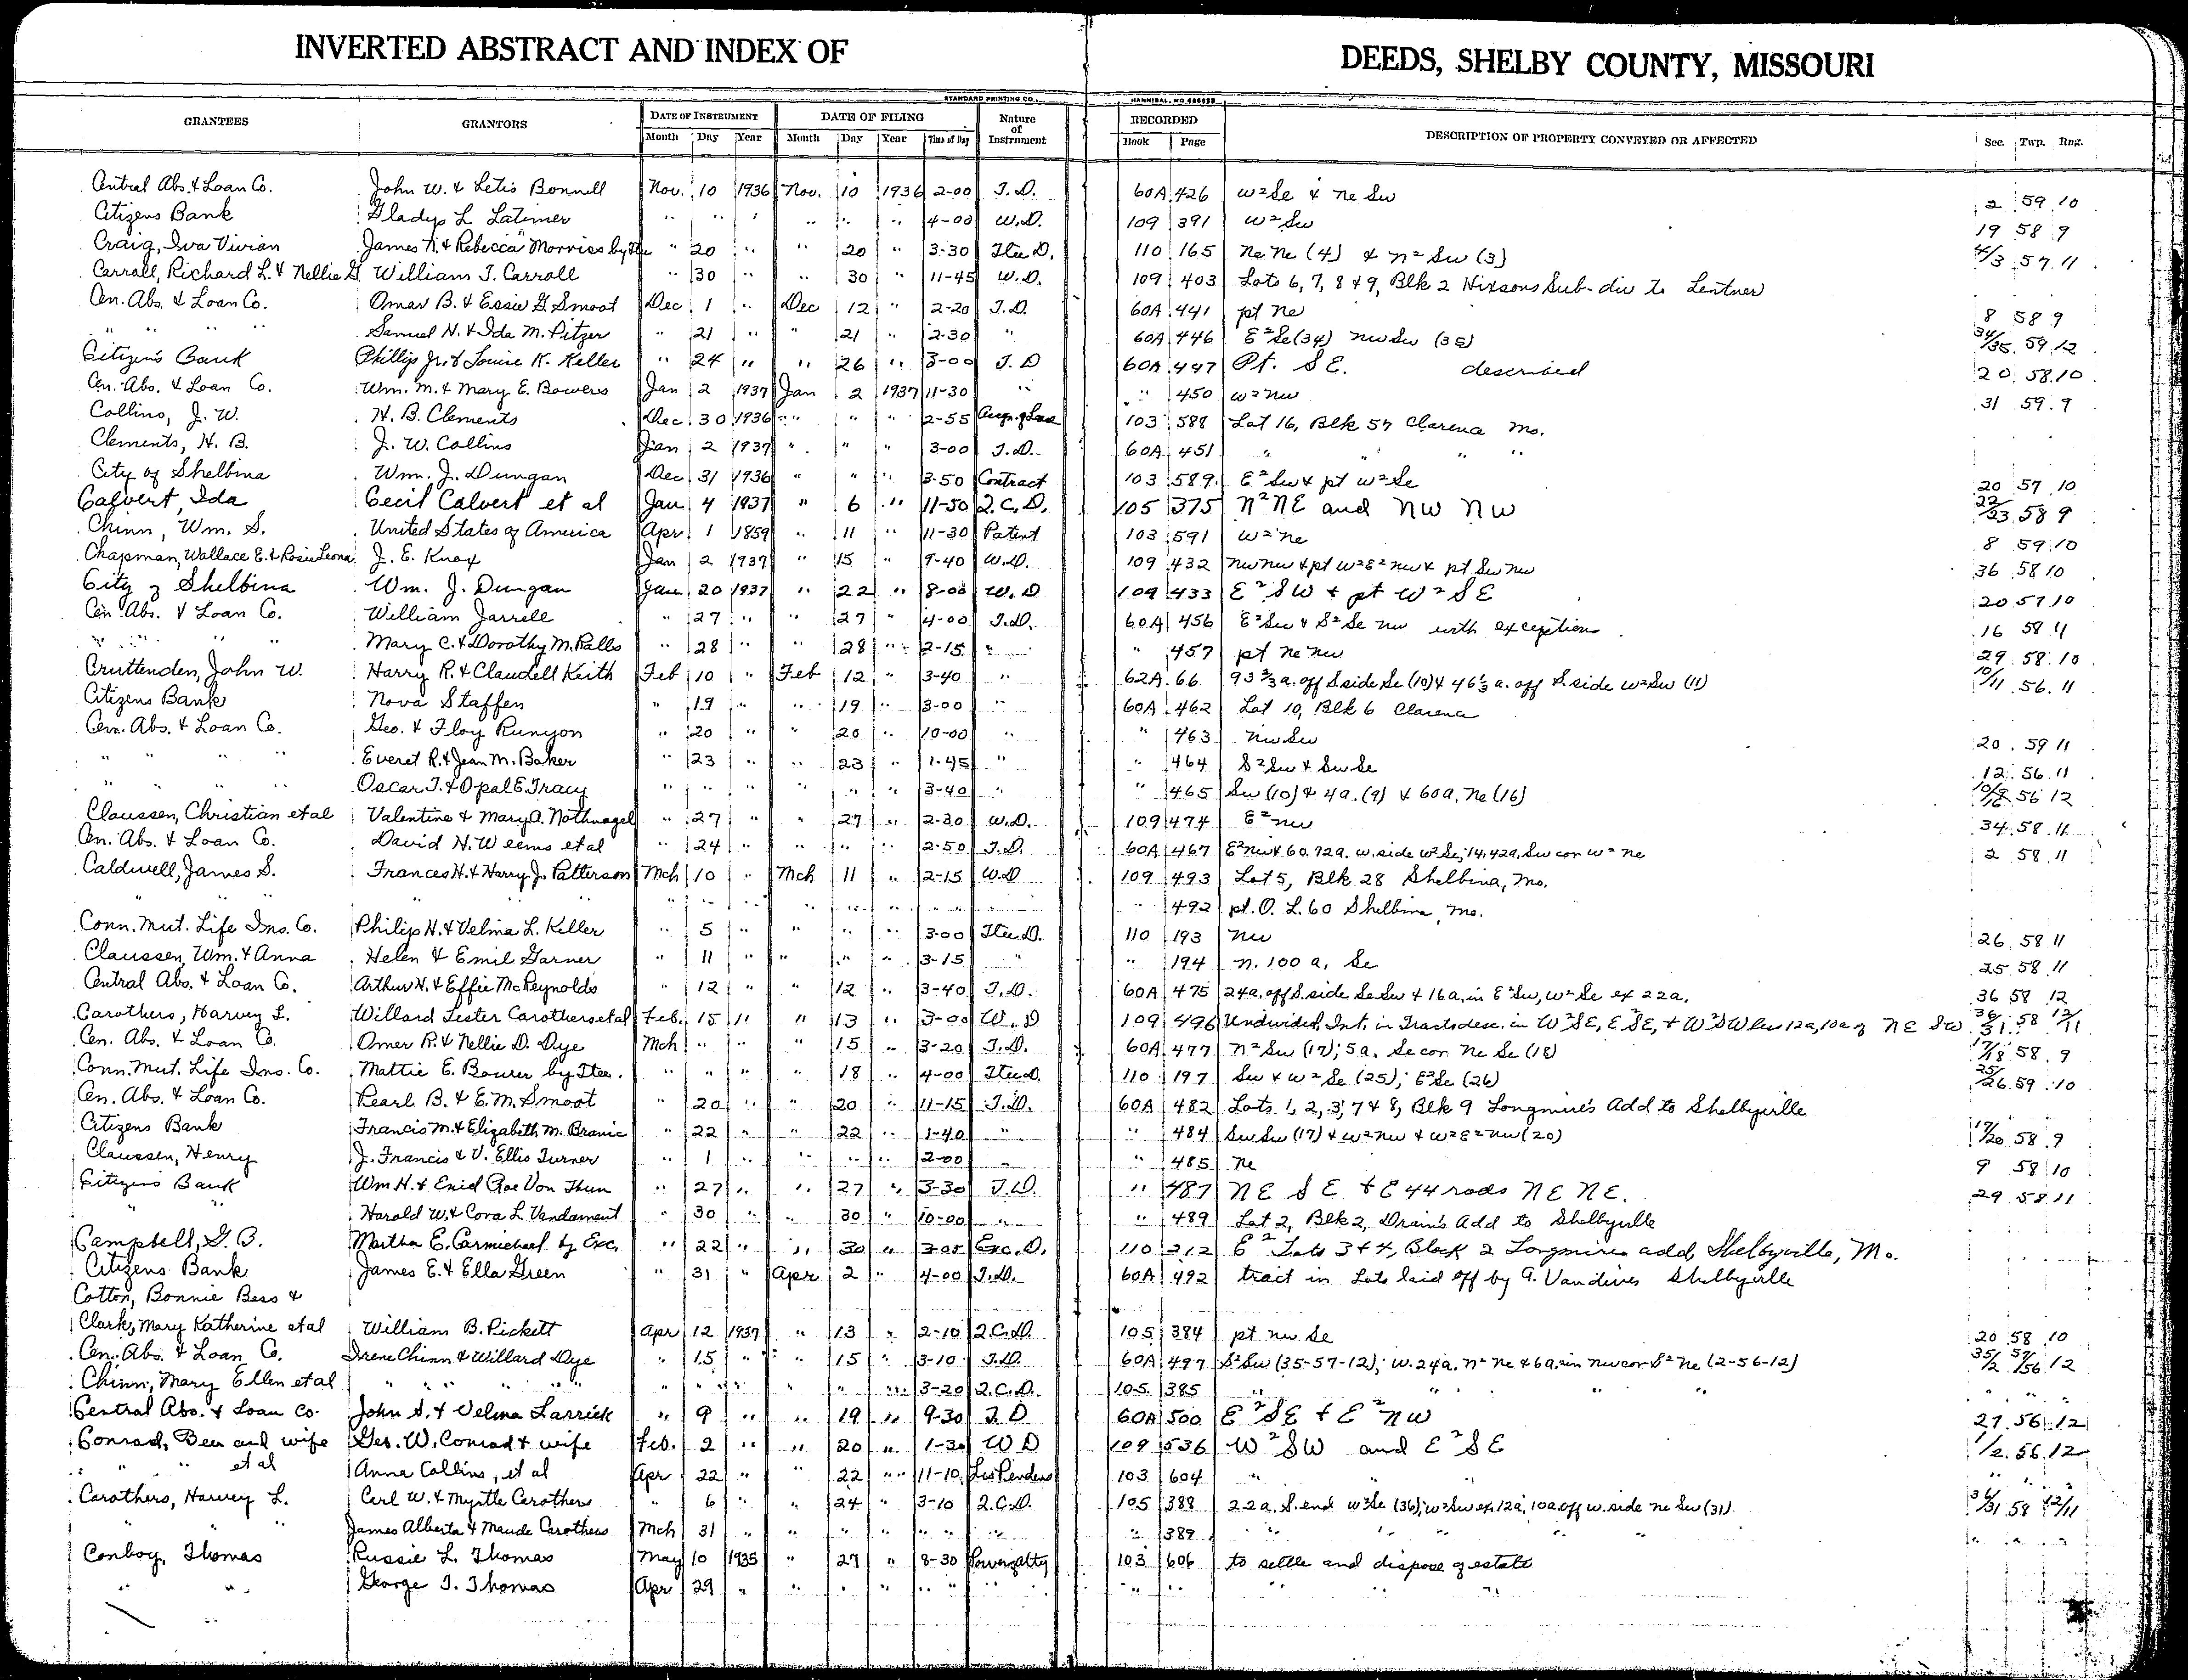 INVERTED ABSTRACT AND INDEX OF DEEDS, SHELBY COUNTY, MISSOURI
STANDARD PRINTING CO., HANNIBAL, MO
GRANTEES GRANTORS DATE OF INSTRUMENT DATE OF FILING Nature of Instrument RECORDED DESCRIPTION OF PROPERTY CONVEYED OR AFFECTED Sec. Twp. Rng.
Month Day Year Month Day Year Time of Day Book Page
Central Abs. & Loan Co. John W. & Letis Bonnell Nov. 10 1936 Nov. 10 1936 2-00 T.D. 60A 426 W²Se & ne Sw 2 59 10
Citizens Bank Gladys L Latimer " " " " " " 4-00 W.D. 109 391 W² Sw 19 58 9
Craig, Iva Vivian James A. & Rebecca Morriss by Tee " 20 " " 20 " 3-30 Tee D. 110 165 Ne Ne (4) & n² Sw (3) 4/3 57 11
Carroll, Richard L. & Nellie G. William T. Carroll " 30 " 30 " 11-45 W.D. 109 403 Lots 6, 7, 8 & 9, Blk 2 Hixsons Sub-div to Lentner
Cen. Abs. & Loan Co. Omar B. & Essie G. Smoot Dec 1 " Dec 12 " 2-20 T.D. 60A 441 pt ne 8 58 9
" " " Samuel N. & Ida M. Pitzer " 21 " 21 2-30 " 60A 446 E²Se (34) nw Sw (35) 34/35 59 12
Citizen's Bank Phillip Jr. & Louise K. Keller " 24 " " 26 " 3-00 T.D 60A 447 Pt. S E. described 20 58 10
Cen. Abs. & Loan Co. Wm. M. & Mary E. Bowers Jan 2 1937 Jan 2 1937 11-30 " " 450 w² nw 31 59 9
Collins, J. W. H. B. Clements Dec 30 1936 " " " 2-55 Asgn. of Lease 103 588 Lot 16, Blk 57 Clarence Mo.
Clements, H. B. J. W. Collins Jan 2 1937 " " " 3-00 T.D. 60A 451 " " " "
City of Shelbina Wm. J. Dungan Dec 31 1936 " " " 3-50 Contract 103 589 E² Sw & pt w² Se 20 57 10
Calvert, Ida Cecil Calvert et al Jan 4 1937 " 6 " 11-50 Q.C.D. 105 375 N² NE and NW NW 22/23 58 9
Chinn, Wm. S. United States of America Apr 1 1859 " 11 " 11-30 Patent 103 591 w² ne 8 59 10
Chapman, Wallace E. & Rosie Leona J. E. Knox Jan 2 1937 " 15 " 9-40 W.D. 109 432 nw nw & pt w² E² nw & pt Sw nw 36 58 10
City of Shelbina Wm. J. Dungan Jan 20 1937 " 22 " 8-00 W.D 109 433 E² SW & pt W² SE 20 57 10
Cen. Abs. & Loan Co. William Jarrell " 27 " " 27 " 4-00 T.D. 60A 456 E² Sw & S² Se nw with exceptions 16 58 11
" " " " Mary C. & Dorothy M. Ralls " 28 " " 28 " 2-15 " " 457 pt ne nw 29 58 10
Cruttenden, John W. Harry R. & Claudell Keith Feb 10 " Feb 12 " 3-40 " 62A 66 93⅔ a. off S side Se (10) & 46⅓ a. off S. side w² Sw (11) 10/11 56 11
Citizens Bank Nova Staffen " 19 " " 19 " 3-00 " 60A 462 Lot 10, Blk 6 Clarence
Cen. Abs. & Loan Co. Geo. & Floy Runyon " 20 " " 20 " 10-00 " " 463 nw Sw 20 59 11
" " " Everet R. & Jean M. Baker " 23 " " 23 " 1-45 " " 464 S² Sw & Sw Se 12 56 11
" " " Oscar T. & Opal E. Tracy " " " " " " 3-40 " " 465 Sw (10) & 4a. (9) & 60a. Ne (16) 56 12
Claussen, Christian et al Valentine & Mary A. Nothnagel " 27 " " 27 " 2-30 W.D. 109 474 E² nw 34 58 11
Cen. Abs. & Loan Co. David N. Weems et al " 24 " " " " 2-50 T.D. 60A 467 E² nw & 60.72a. w. side w² Se; 14.42a. Sw cor w² ne 2 58 11
Caldwell, James S. Frances H. & Harry J. Patterson Mch 10 " Mch 11 " 2-15 W.D 109 493 Lot 5, Blk 28 Shelbina, Mo.
" " " " " " " " " 492 pt. O. L. 60 Shelbina, Mo.
Conn. Mut. Life Ins. Co. Philip H. & Velma L. Keller " 5 " " " " 3-00 Tee D. 110 193 nw 26 58 11
Claussen, Wm. & Anna Helen & Emil Garner " 11 " " " " 3-15 " " 194 n. 100 a. Se 25 58 11
Central Abs. & Loan Co. Arthur N. & Effie McReynolds " 12 " " 12 " 3-40 T.D. 60A 475 24a. off S. side Se Sw & 16a. in E² Sw, w² Se ex 22a. 36 58 12
Carothers, Harvey L. Willard Lester Carothers et al Feb. 15 " " 13 " 3-00 W.D 109 496 Undivided Int. in Tracts desc. in W² SE, E² SE, & W² SW less 12a, 10a of NE SW 36/31 58 12/11
Cen. Abs. & Loan Co. Omer R. & Nellie D. Dye Mch " " " 15 " 3-20 T.D. 60A 477 n² Sw (17); 5a. Se cor ne Se (18) 17/18 58 9
Conn. Mut. Life Ins. Co. Mattie E. Bower by Tee. " " " " 18 " 4-00 Tee D. 110 197 Sw & w² Se (25); E² Se (26) 25/26 59 10
Cen. Abs. & Loan Co. Pearl B. & E. M. Smoot " 20 " " 20 " 11-15 T.D. 60A 482 Lots 1, 2, 3, 7 & 8, Blk 9 Longmire's Add to Shelbyville
Citizens Bank Francis M. & Elizabeth M. Branic " 22 " " 22 " 1-40 " " 484 Sw Sw (17) & w² nw & w² E² nw (20) 17/20 58 9
Claussen, Henry J. Francis & V. Ellis Turner " 1 " " " " 2-00 " " 485 ne 9 58 10
Citizens Bank Wm H. & Enid Rae Von Thun " 27 " " 27 " 3-30 T.D. " 487 NE SE & E 44 rods NE NE. 29 58 11
" " Harold W. & Cora L. Vandament " 30 " " 30 " 10-00 " " 489 Lot 2, Blk 2, Drain's Add to Shelbyville
Campbell, G. B. Martha E. Carmichael by Exc. " 22 " " 30 " 3-05 Exc. D. 110 212 E² Lots 3 & 4, Block 2 Longmires add, Shelbyville, Mo.
Citizens Bank James E. & Ella Green " 31 " Apr 2 " 4-00 T.D. 60A 492 tract in Lots laid off by A. Vandivers Shelbyville
Cotton, Bonnie Bess &
Clark, Mary Katherine et al William B. Pickett Apr 12 1937 " 13 " 2-10 Q.C.D. 105 384 pt nw Se 20 58 10
Cen. Abs. & Loan Co. Irene Chinn & Willard Dye " 15 " " 15 " 3-10 T.D. 60A 497 S² Sw (35-57-12); w. 24a. n² ne & 6a. in nw cor S² ne (2-56-12) 35/2 57/56 12
Chinn, Mary Ellen et al " " " " " " " " " " 3-20 Q.C.D. 105 385 " " " "
Central Abs. & Loan Co. John S. & Velma Larrick " 9 " " 19 " 9-30 T.D 60A 500 E² SE & E² NW 27 56 12
Conrad, Ben and wife Geo. W. Conrad & wife Feb. 2 " " 20 " 1-30 W D 109 536 W² SW and E² SE 1/2 56 12
" " et al Anna Collins, et al Apr 22 " " 22 " 11-10 Lis Pendens 103 604 " " "
Carothers, Harvey L. Carl W. & Myrtle Carothers " 6 " " 24 " 3-10 Q.C.D. 105 388 22a. S. end w² Se (36); w² Sw ex 12a; 10a off w. side ne Sw (31) 36/31 58 12/11
" " James Alberta & Maude Carothers Mch 31 " " " " " " " " 389 " " " " "
Conboy, Thomas Russie L. Thomas May 10 1935 " 27 " 8-30 Power of Atty 103 606 to settle and dispose of estate
" " George T. Thomas Apr 29 " " " " " " " " " " "